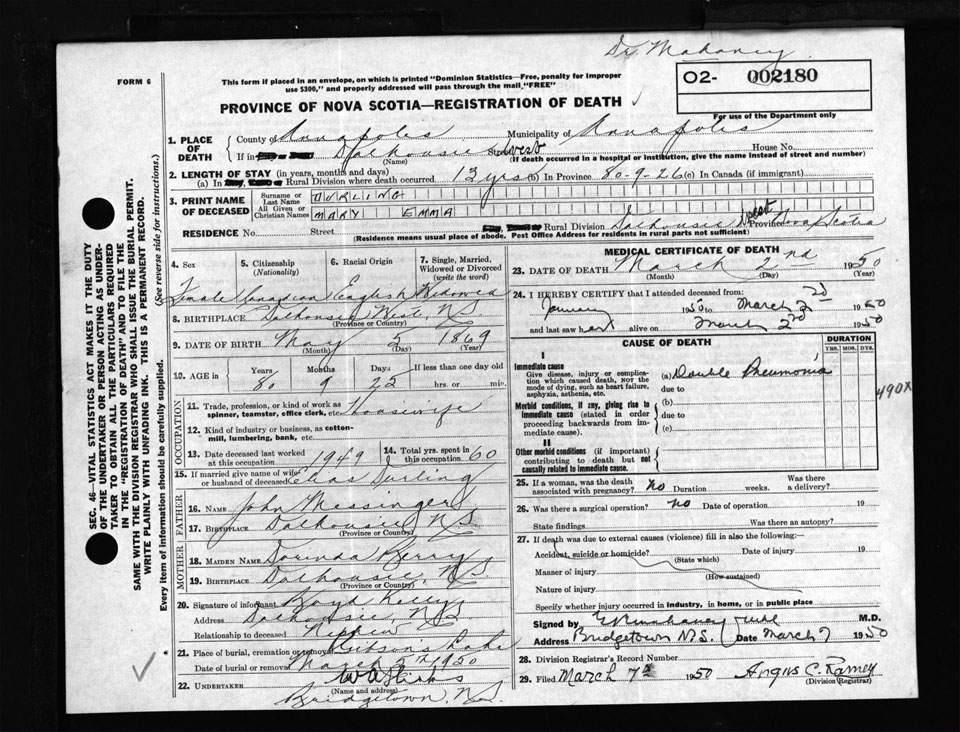 Dr. Mahaney
FORM 6
This form if placed in an envelope, on which is printed "Dominion Statistics—Free, penalty for improper
use $300," and properly addressed will pass through the mail "FREE"
O2- 002180
For use of the Department only
PROVINCE OF NOVA SCOTIA—REGISTRATION OF DEATH
1. PLACE OF DEATH
County of Annapolis Municipality of Annapolis
If in Dalhousie West Street House No.
(Name) (If death occurred in a hospital or institution, give the name instead of street and number)
2. LENGTH OF STAY (in years, months and days)
(a) In Rural Division where death occurred 13 yrs (b) In Province 80-9-26 (c) In Canada (if immigrant)
3. PRINT NAME OF DECEASED
Surname or Last Name DURLING
All Given or Christian Names MARY EMMA
RESIDENCE No. Street Rural Division Dalhousie West Province Nova Scotia
(Residence means usual place of abode. Post Office Address for residents in rural parts not sufficient)
4. Sex
Female
5. Citizenship
(Nationality)
Canadian
6. Racial Origin
English
7. Single, Married, Widowed or Divorced
(write the word)
Widowed
8. BIRTHPLACE Dalhousie West, N.S.
(Province or Country)
9. DATE OF BIRTH May 5 1869
(Month) (Day) (Year)
10. AGE in Years Months Days If less than one day old
80 9 25 hrs. or min.
OCCUPATION
11. Trade, profession, or kind of work as spinner, teamster, office clerk, etc. Housewife
12. Kind of industry or business, as cotton-mill, lumbering, bank, etc.
13. Date deceased last worked at this occupation 1949
14. Total yrs. spent in this occupation 60
15. If married give name of wife or husband of deceased Elias Durling
FATHER
16. NAME John Messinger
17. BIRTHPLACE Dalhousie, N.S.
(Province or Country)
MOTHER
18. MAIDEN NAME Dorinda Berry
19. BIRTHPLACE Dalhousie, N.S.
(Province or Country)
20. Signature of informant Boyd Kelly
Address Dalhousie, N.S.
Relationship to deceased Nephew
21. Place of burial, cremation or removal Gibsons Lake
Date of burial or removal March 5th 1950
22. UNDERTAKER
(Name and address)
Bridgetown, N.S.
MEDICAL CERTIFICATE OF DEATH
23. DATE OF DEATH March 2nd 1950
(Month) (Day) (Year)
24. I HEREBY CERTIFY that I attended deceased from:
January 1950 to March 2nd 1950
and last saw her alive on March 2nd 1950
CAUSE OF DEATH
DURATION
YRS. MOS. DYS.
I
Immediate cause
Give disease, injury or complication which caused death, NOT the mode of dying, such as heart failure, asphyxia, asthenia, etc.
(a) Double Pneumonia
due to
490X
Morbid conditions, if any, giving rise to immediate cause (stated in order proceeding backwards from immediate cause).
(b)
due to
(c)
II
Other morbid conditions (if important) contributing to death but not causally related to immediate cause.
25. If a woman, was the death associated with pregnancy? No Duration weeks. Was there a delivery?
26. Was there a surgical operation? No Date of operation 19
State findings Was there an autopsy?
27. If death was due to external causes (violence) fill in also the following:—
Accident, suicide or homicide? Date of injury 19
(State which)
Manner of injury
(How sustained)
Nature of injury
Specify whether injury occurred in industry, in home, or in public place
Signed by M.D.
Address Bridgetown N.S. Date March 7 1950
28. Division Registrar's Record Number
29. Filed March 7th 1950 Angus C. Ramey
(Division Registrar)
SEC. 46—VITAL STATISTICS ACT MAKES IT THE DUTY
OF THE UNDERTAKER OR PERSON ACTING AS UNDER-
TAKER TO OBTAIN ALL THE PARTICULARS REQUIRED
IN THE "REGISTRATION OF DEATH" AND TO FILE THE
SAME WITH THE DIVISION REGISTRAR WHO SHALL ISSUE THE BURIAL PERMIT.
WRITE PLAINLY WITH UNFADING INK. THIS IS A PERMANENT RECORD.
Every item of information should be carefully supplied. (See reverse side for instructions.)